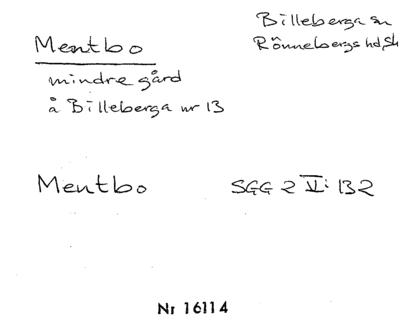 Mentbo
Billeberga sn
Rönnebergs hd, Sk
mindre gård
å Billeberga nr 13
Mentbo
SGG 2 V: 132
Nr 16114